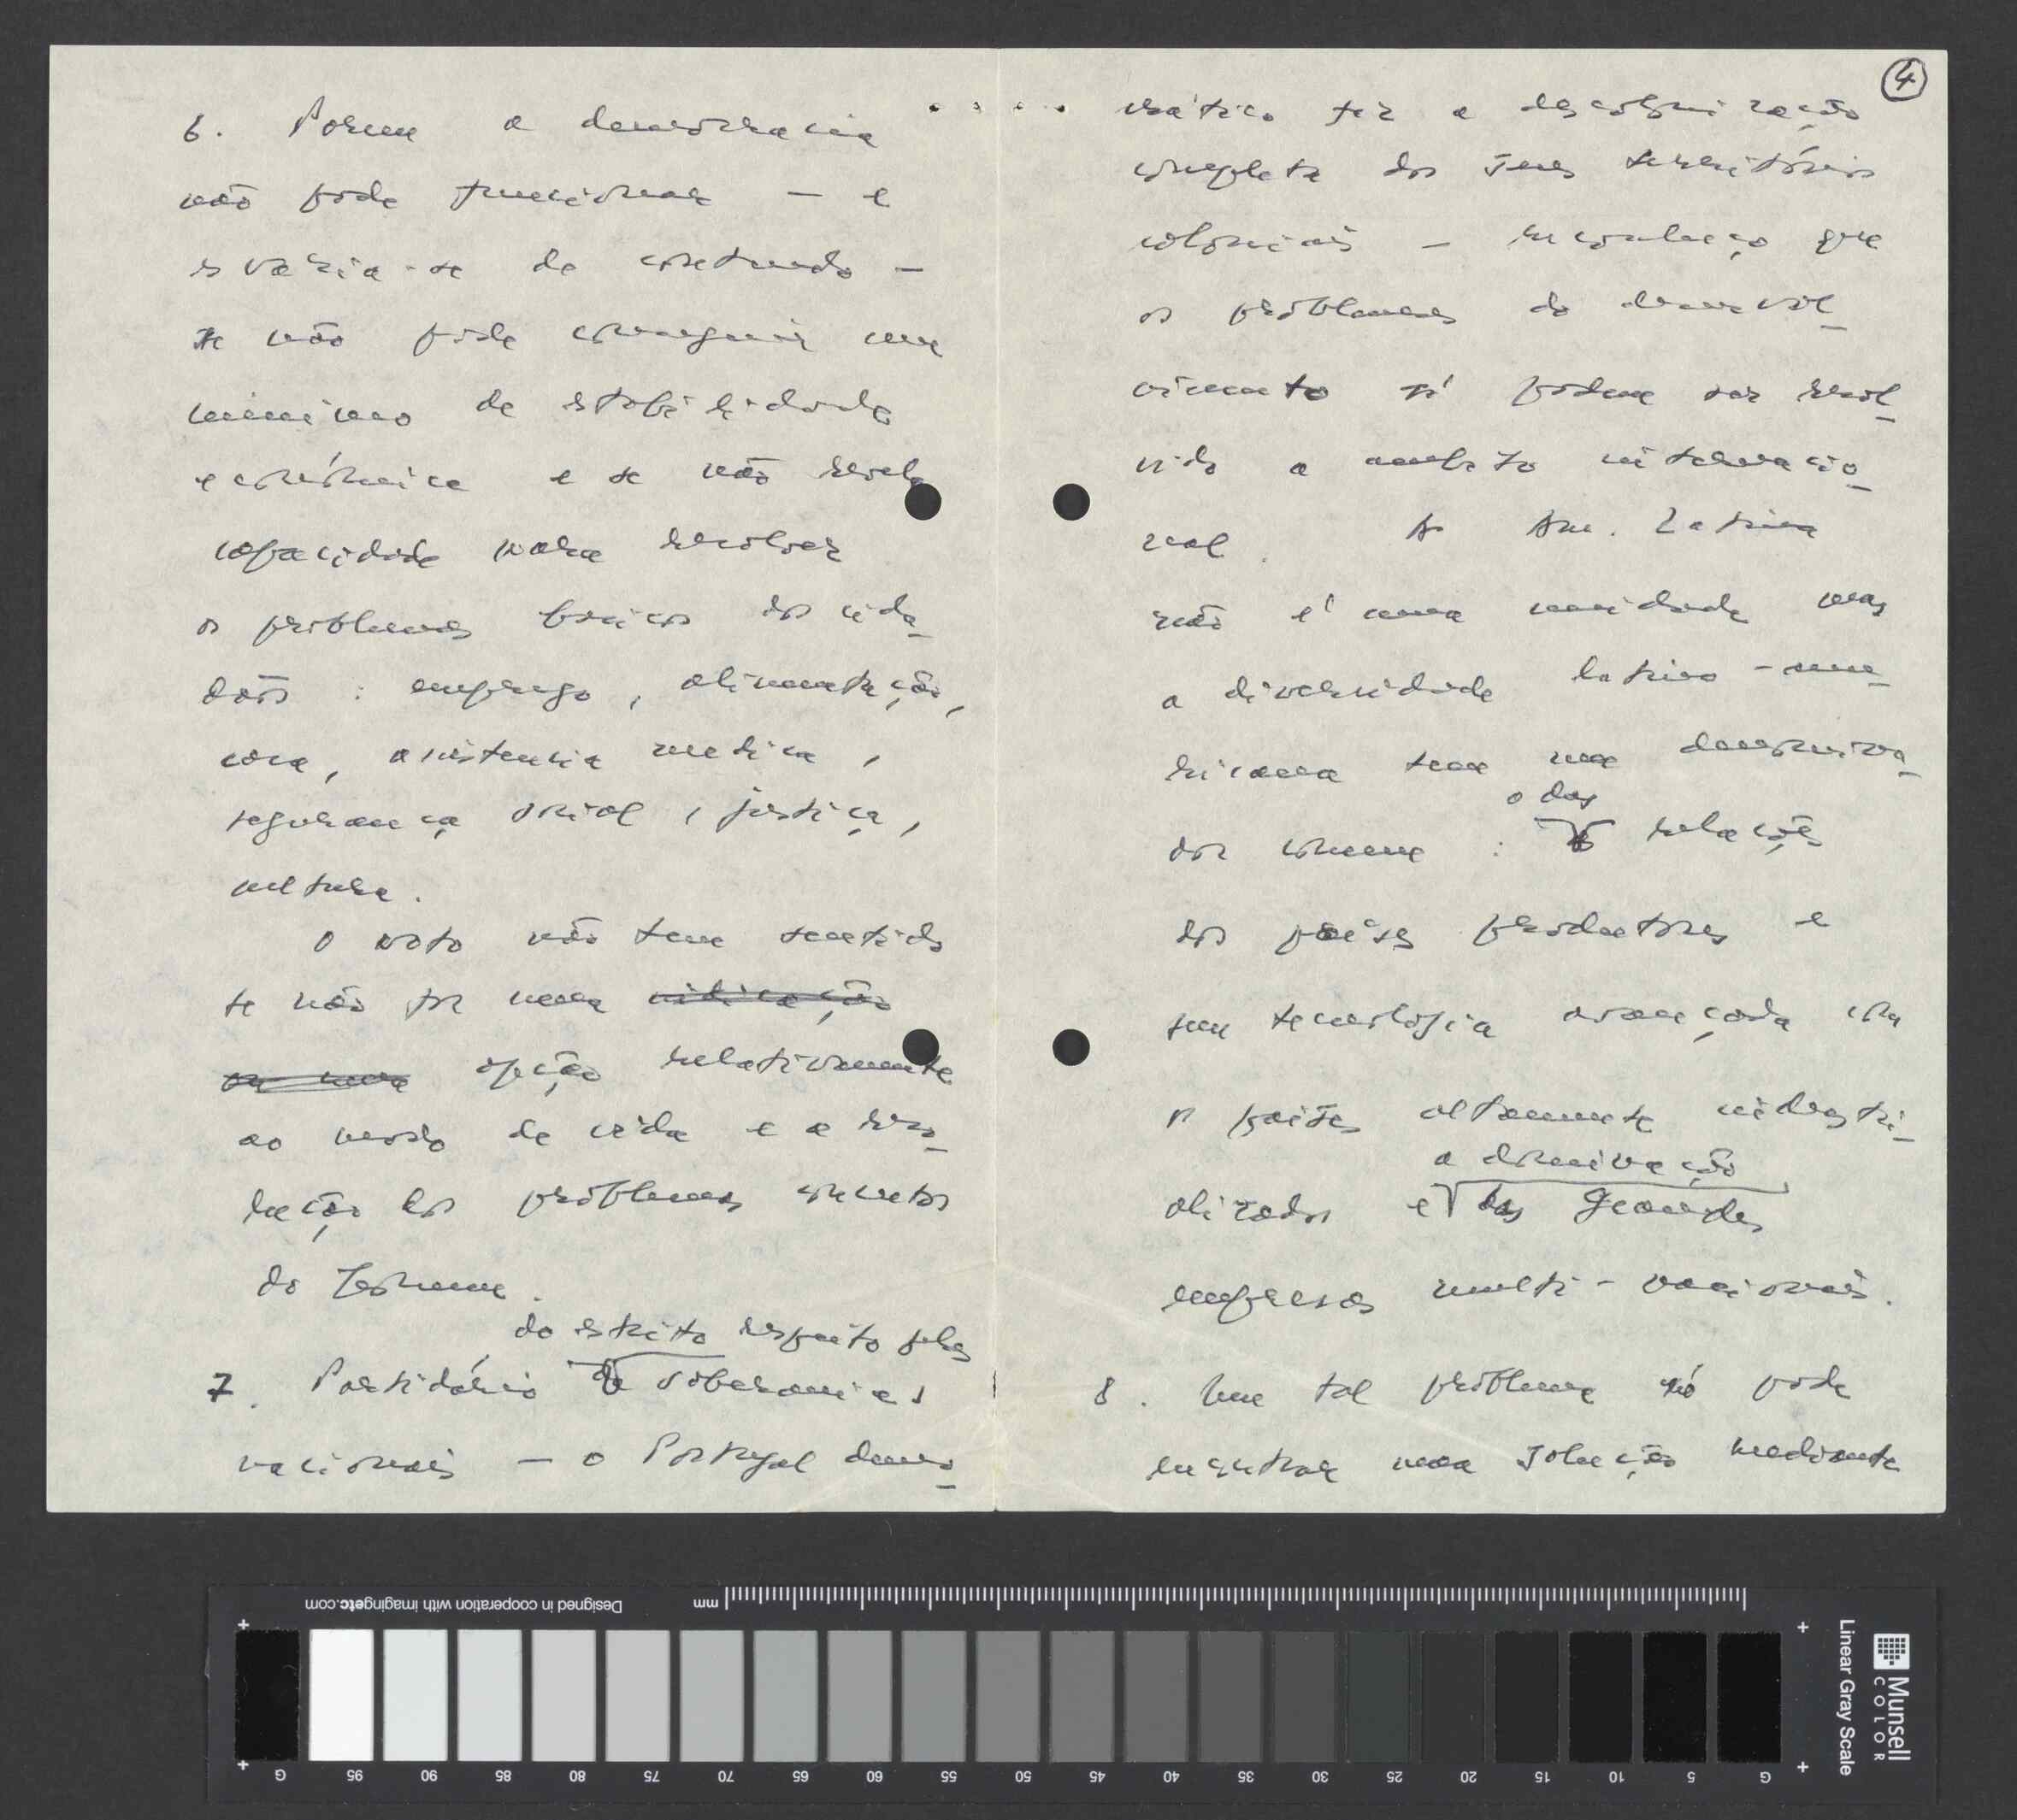 6. Porem a democracia
não pode funcionar — e
esvazia-se de conteudo —
se não pode conseguir um
minimo de estabilidade
económica e se não revela
capacidade para resolver
os problemas basicos dos cida-
dãos : emprego, alimentação,
casa, assistencia medica,
segurança social, justiça,
cultura.
O voto não tem sentido
se não for uma indicação
ou uma opção relativamente
ao modo de vida e a reso-
lução dos problemas concretos
do homem.
do estrito respeito pelas
7. Partidário de soberanias
nacionais — o Portugal demo-
4
crático fez a descolonização
completa dos seus territórios
coloniais — reconheço que
os problemas do desenvol-
vimento só podem ser resol-
vido a ambito internacio-
nal. A Am. Latina
não é uma unidade mas
a diversidade latino-ame-
ricana tem um denomina-
o das
dor comum : relações
dos países productores e
sem tecnologia avançada com
os países altamente industri-
a dominação
alizados e das grandes
empresas multi-nacionais.
8. Um tal problema só pode
encontrar uma solução mediante
Designed in cooperation with imagingetc.com
mm
G 95 90 85 80 75 70 65 60 55 50 45 40 35 30 25 20 15 10 5 G
Munsell
COLOR
Linear Gray Scale